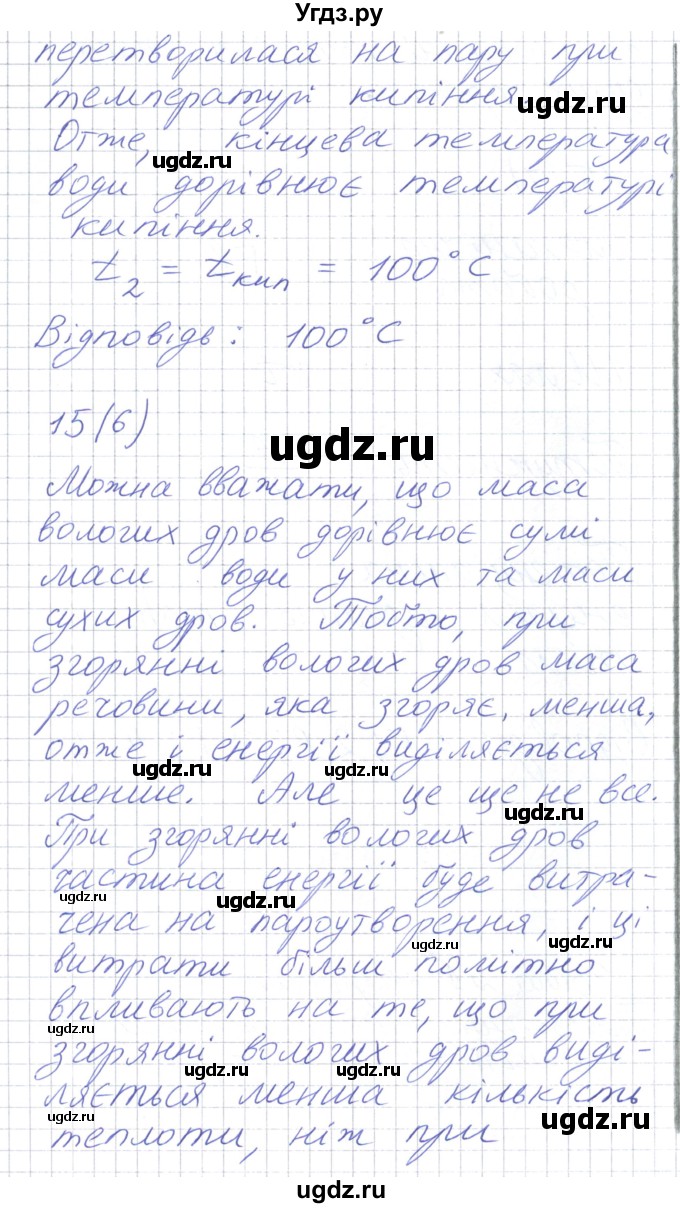 Угдз.ру
перетворилася на пару при
температурі кипіння.
ugdz.ru
Отже, кінцева температура
ugdz.ru
води дорівнює температурі
кипіння.
t₂ = tкип = 100°C
Відповідь: 100°C
15(6)
ugdz.ru
Можна вважати, що маса
вологих дров дорівнює сумі
маси води у них та маси
сухих дров. Тобто, при
згорянні вологих дров маса
речовини, яка згоряє, менша,
отже і енергії виділяється
ugdz.ru ugdz.ru
менше. Але це ще не все.
При згорянні вологих дров
частина енергії буде витра-
ugdz.ru ugdz.ru
чена на пароутворення, і ці
ugdz.ru ugdz.ru
витрати більш помітно
впливають на те, що при
ugdz.ru
згорянні вологих дров виді-
ugdz.ru ugdz.ru
ляється менша кількість
ugdz.ru
теплоти, ніж при
ugdz.ru